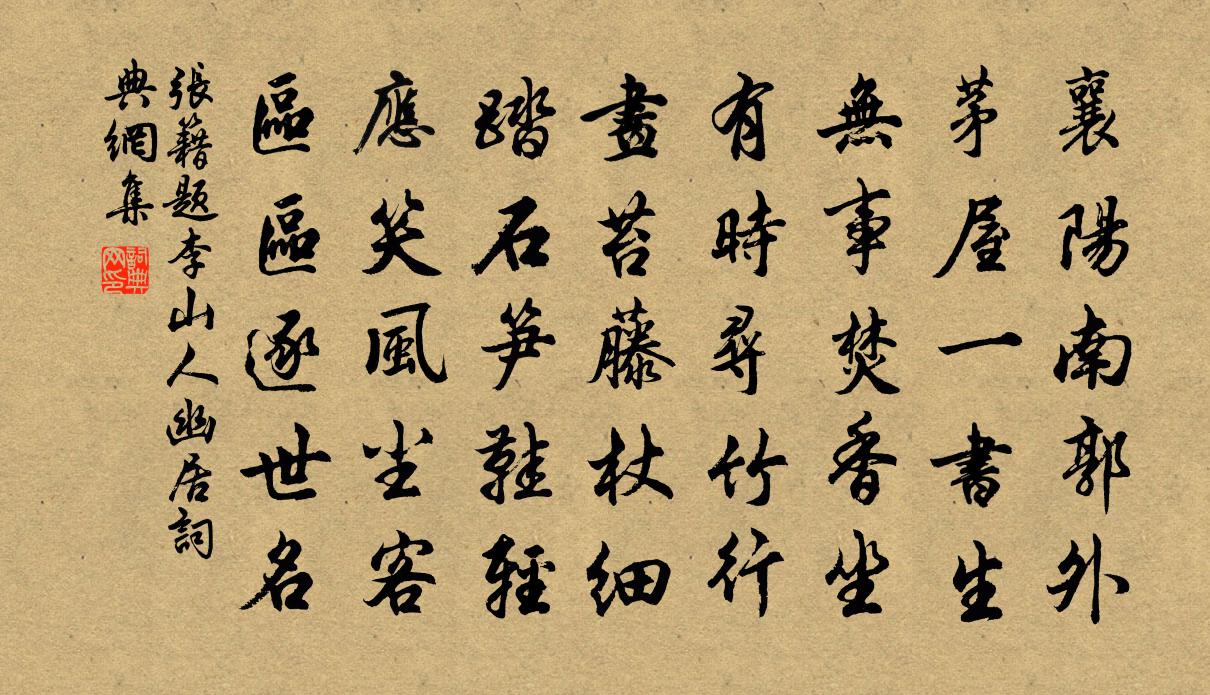 襄陽南郭外
茅屋一書生
無事焚香坐
有時尋竹行
畫苔藤杖細
踏石笋鞋輕
應笑風尘客
區區逐世名
張籍题李山人幽居詞
典網集
詞典
网印